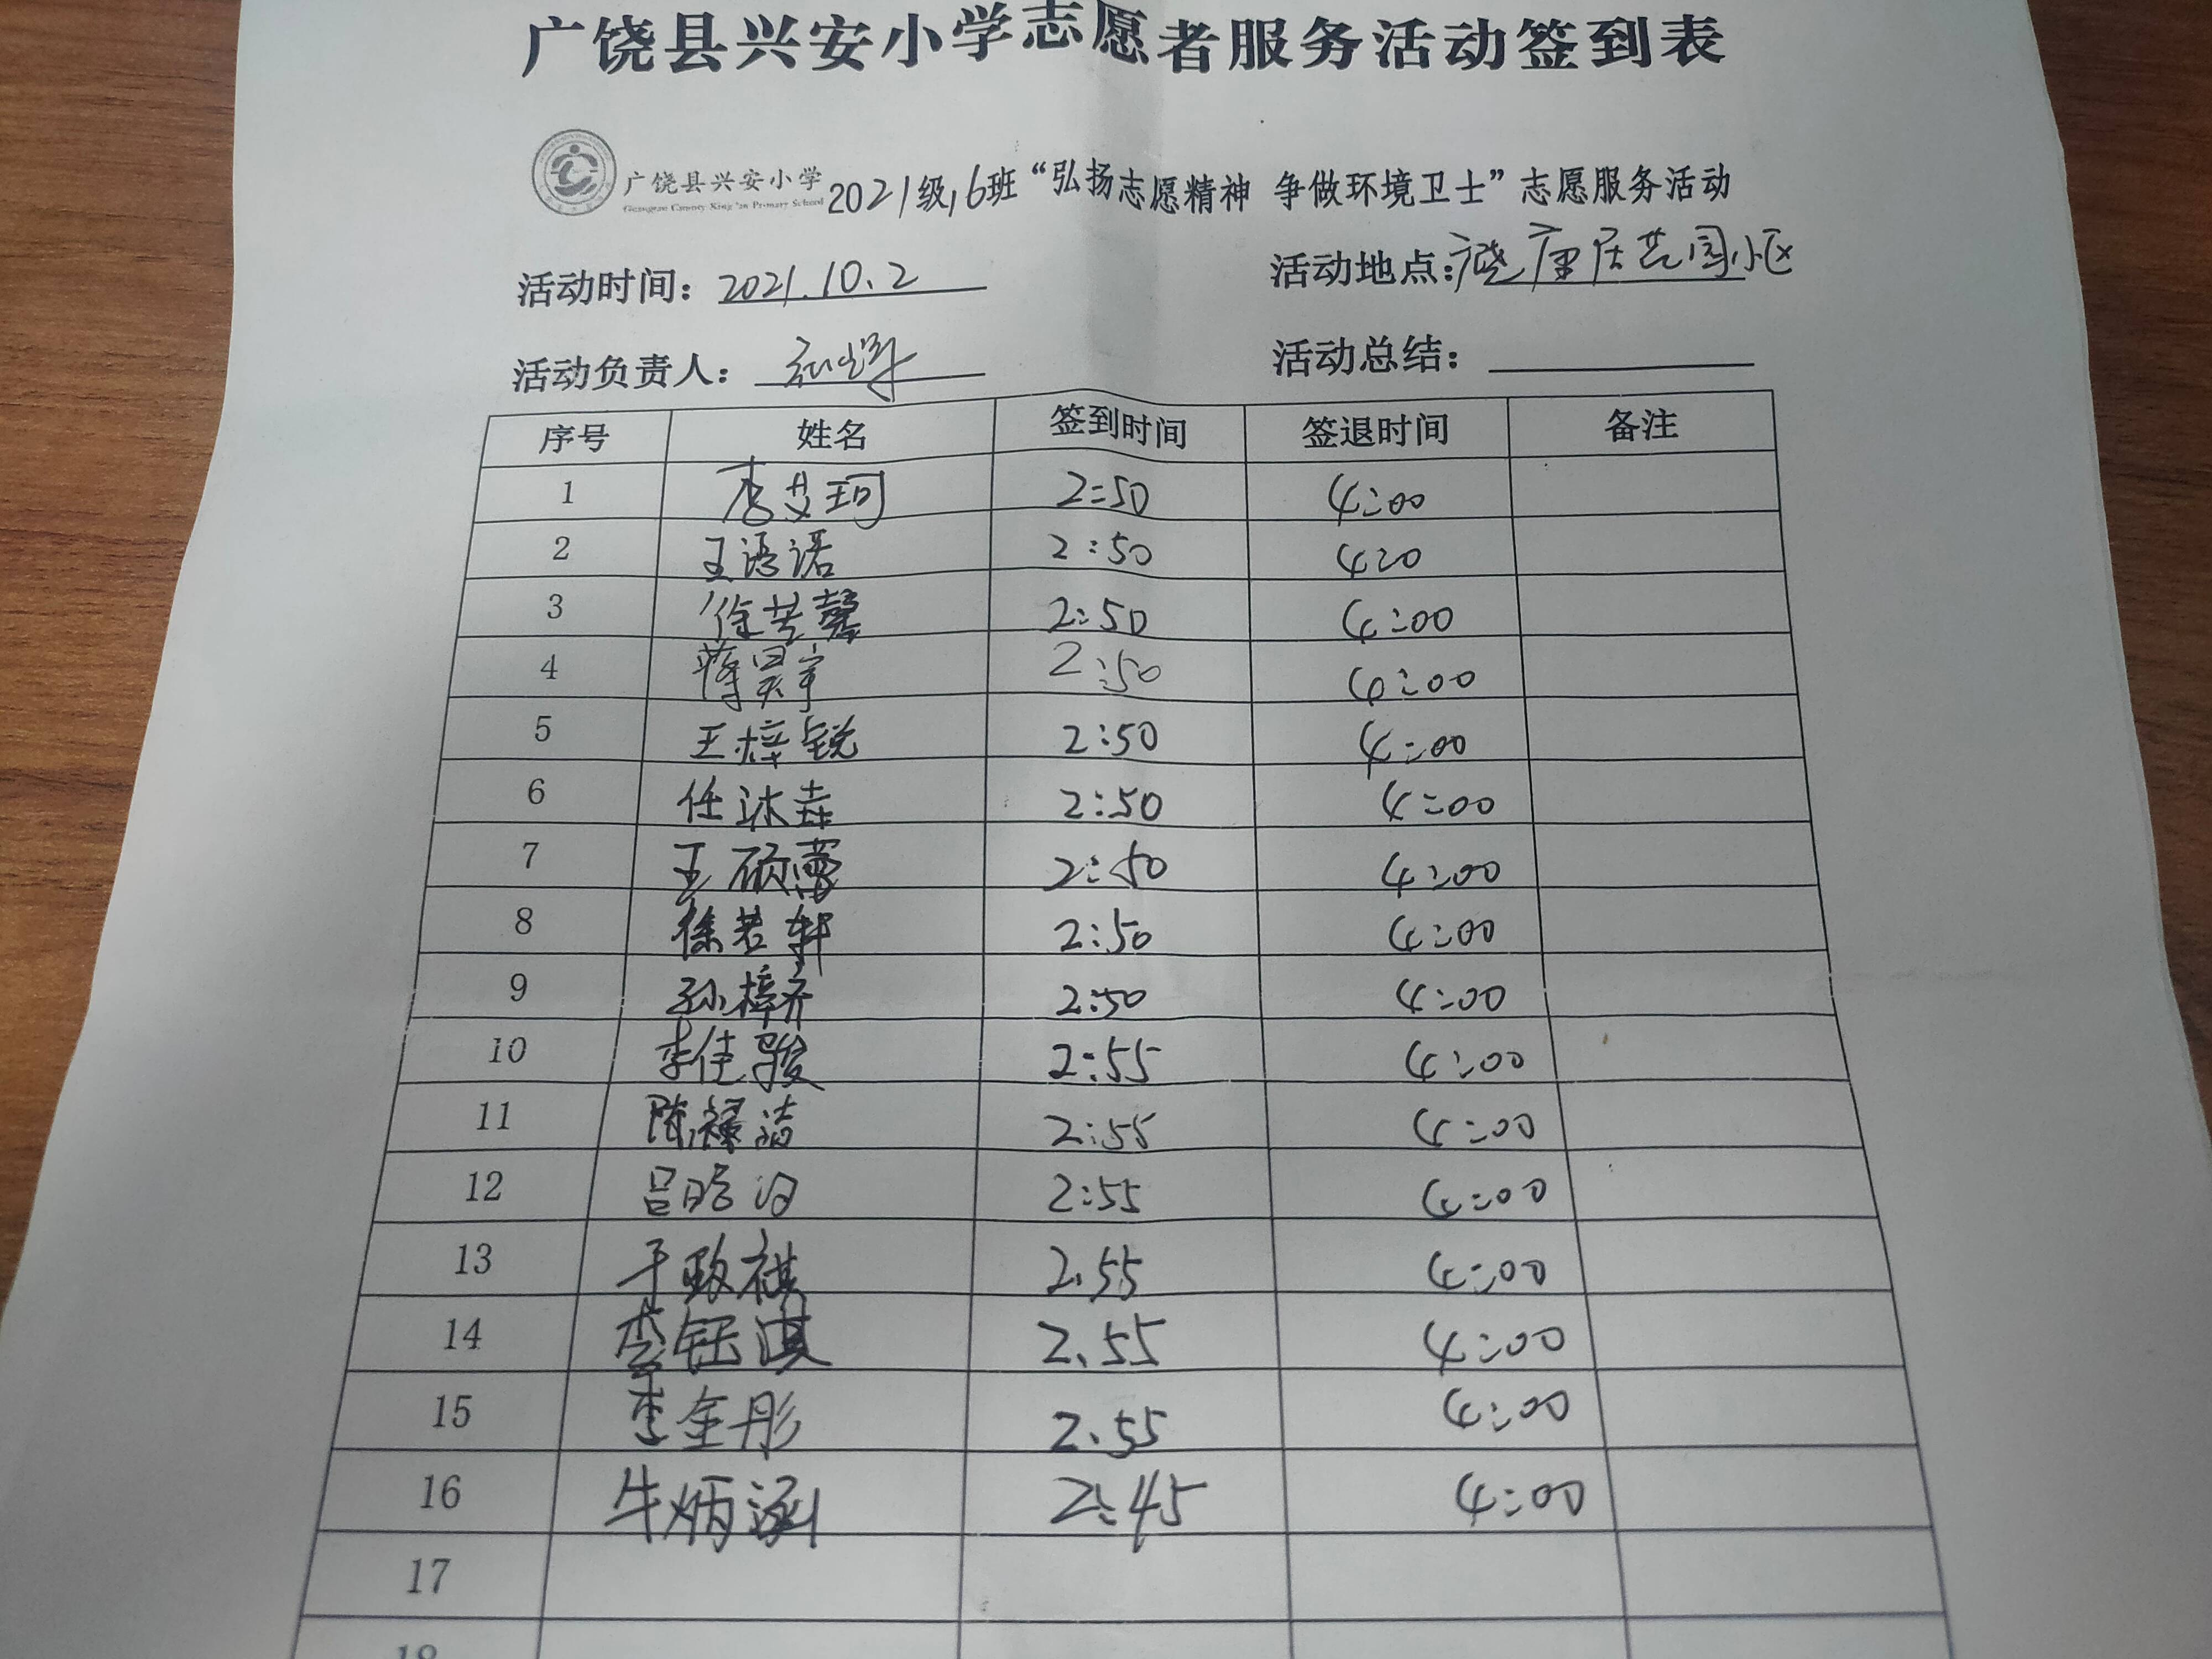 广饶县兴安小学志愿者服务活动签到表
广饶县兴安小学
Guangrao County Xing'an Primary School
2021级,6班“弘扬志愿精神 争做环境卫士”志愿服务活动
活动时间：2021.10.2 活动地点：康居花园小区
活动负责人： 活动总结：
序号 姓名 签到时间 签退时间 备注
1 李艾珂 2:50 4:00
2 王语诺 2:50 4:0
3 徐艺馨 2:50 4:00
4 蒋昊宇 2:50 4:00
5 王梓锐 2:50 4:00
6 任沐垚 2:50 4:00
7 王硕蕾 2:50 4:00
8 徐若轩 2:50 4:00
9 孙梓齐 2:50 4:00
10 李佳骏 2:55 4:00
11 陈禄洁 2:55 4:00
12 吕晗汐 2:55 4:00
13 于政祺 2.55 4:00
14 李钰淇 2.55 4:00
15 李金彤 2.55 4:00
16 牛炳涵 2:45 4:00
17
18